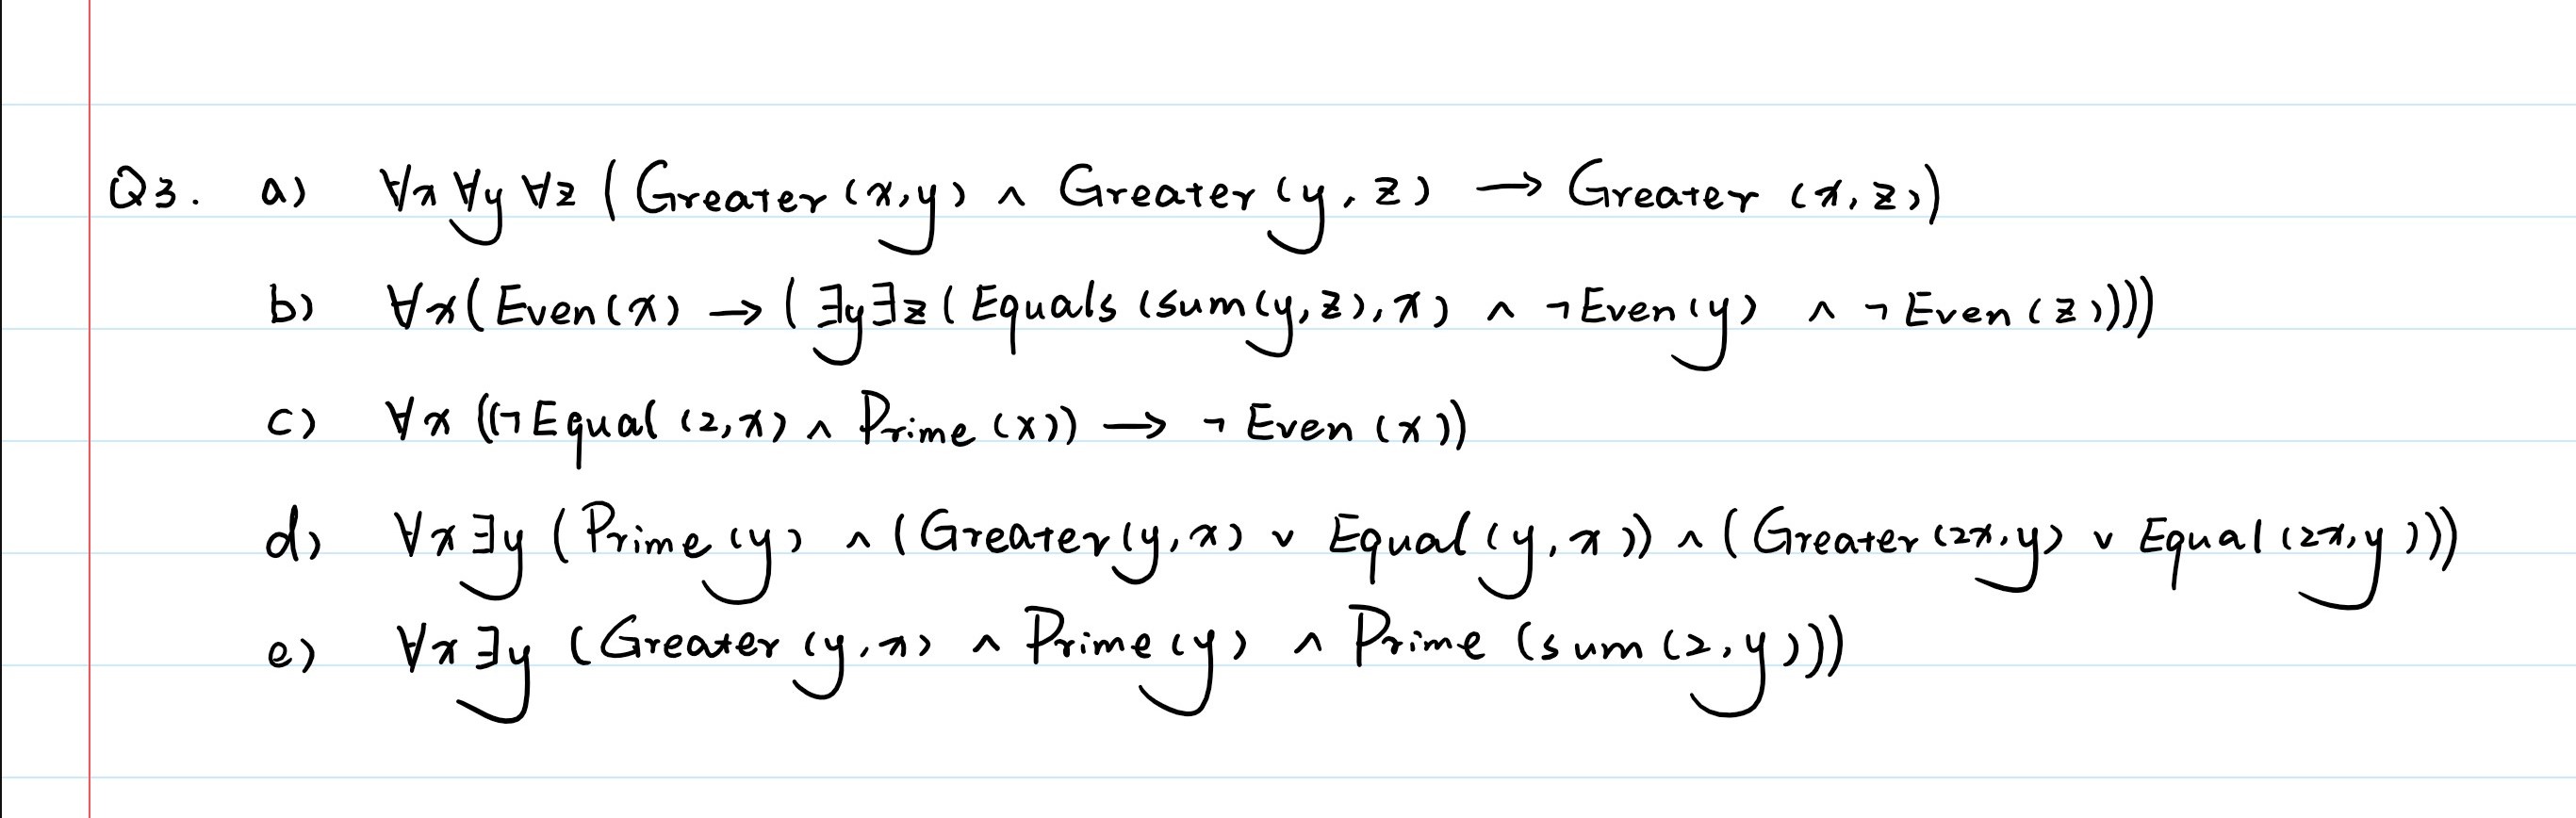 Q3. a) ∀x ∀y ∀z (Greater(x,y) ∧ Greater(y,z) → Greater(x,z))
b) ∀x(Even(x) → (∃y∃z(Equals(sum(y,z),x) ∧ ¬Even(y) ∧ ¬Even(z))))
c) ∀x((¬Equal(2,x) ∧ Prime(x)) → ¬Even(x))
d) ∀x∃y(Prime(y) ∧ (Greater(y,x) ∨ Equal(y,x)) ∧ (Greater(2x,y) ∨ Equal(2x,y)))
e) ∀x∃y(Greater(y,x) ∧ Prime(y) ∧ Prime(sum(2,y)))